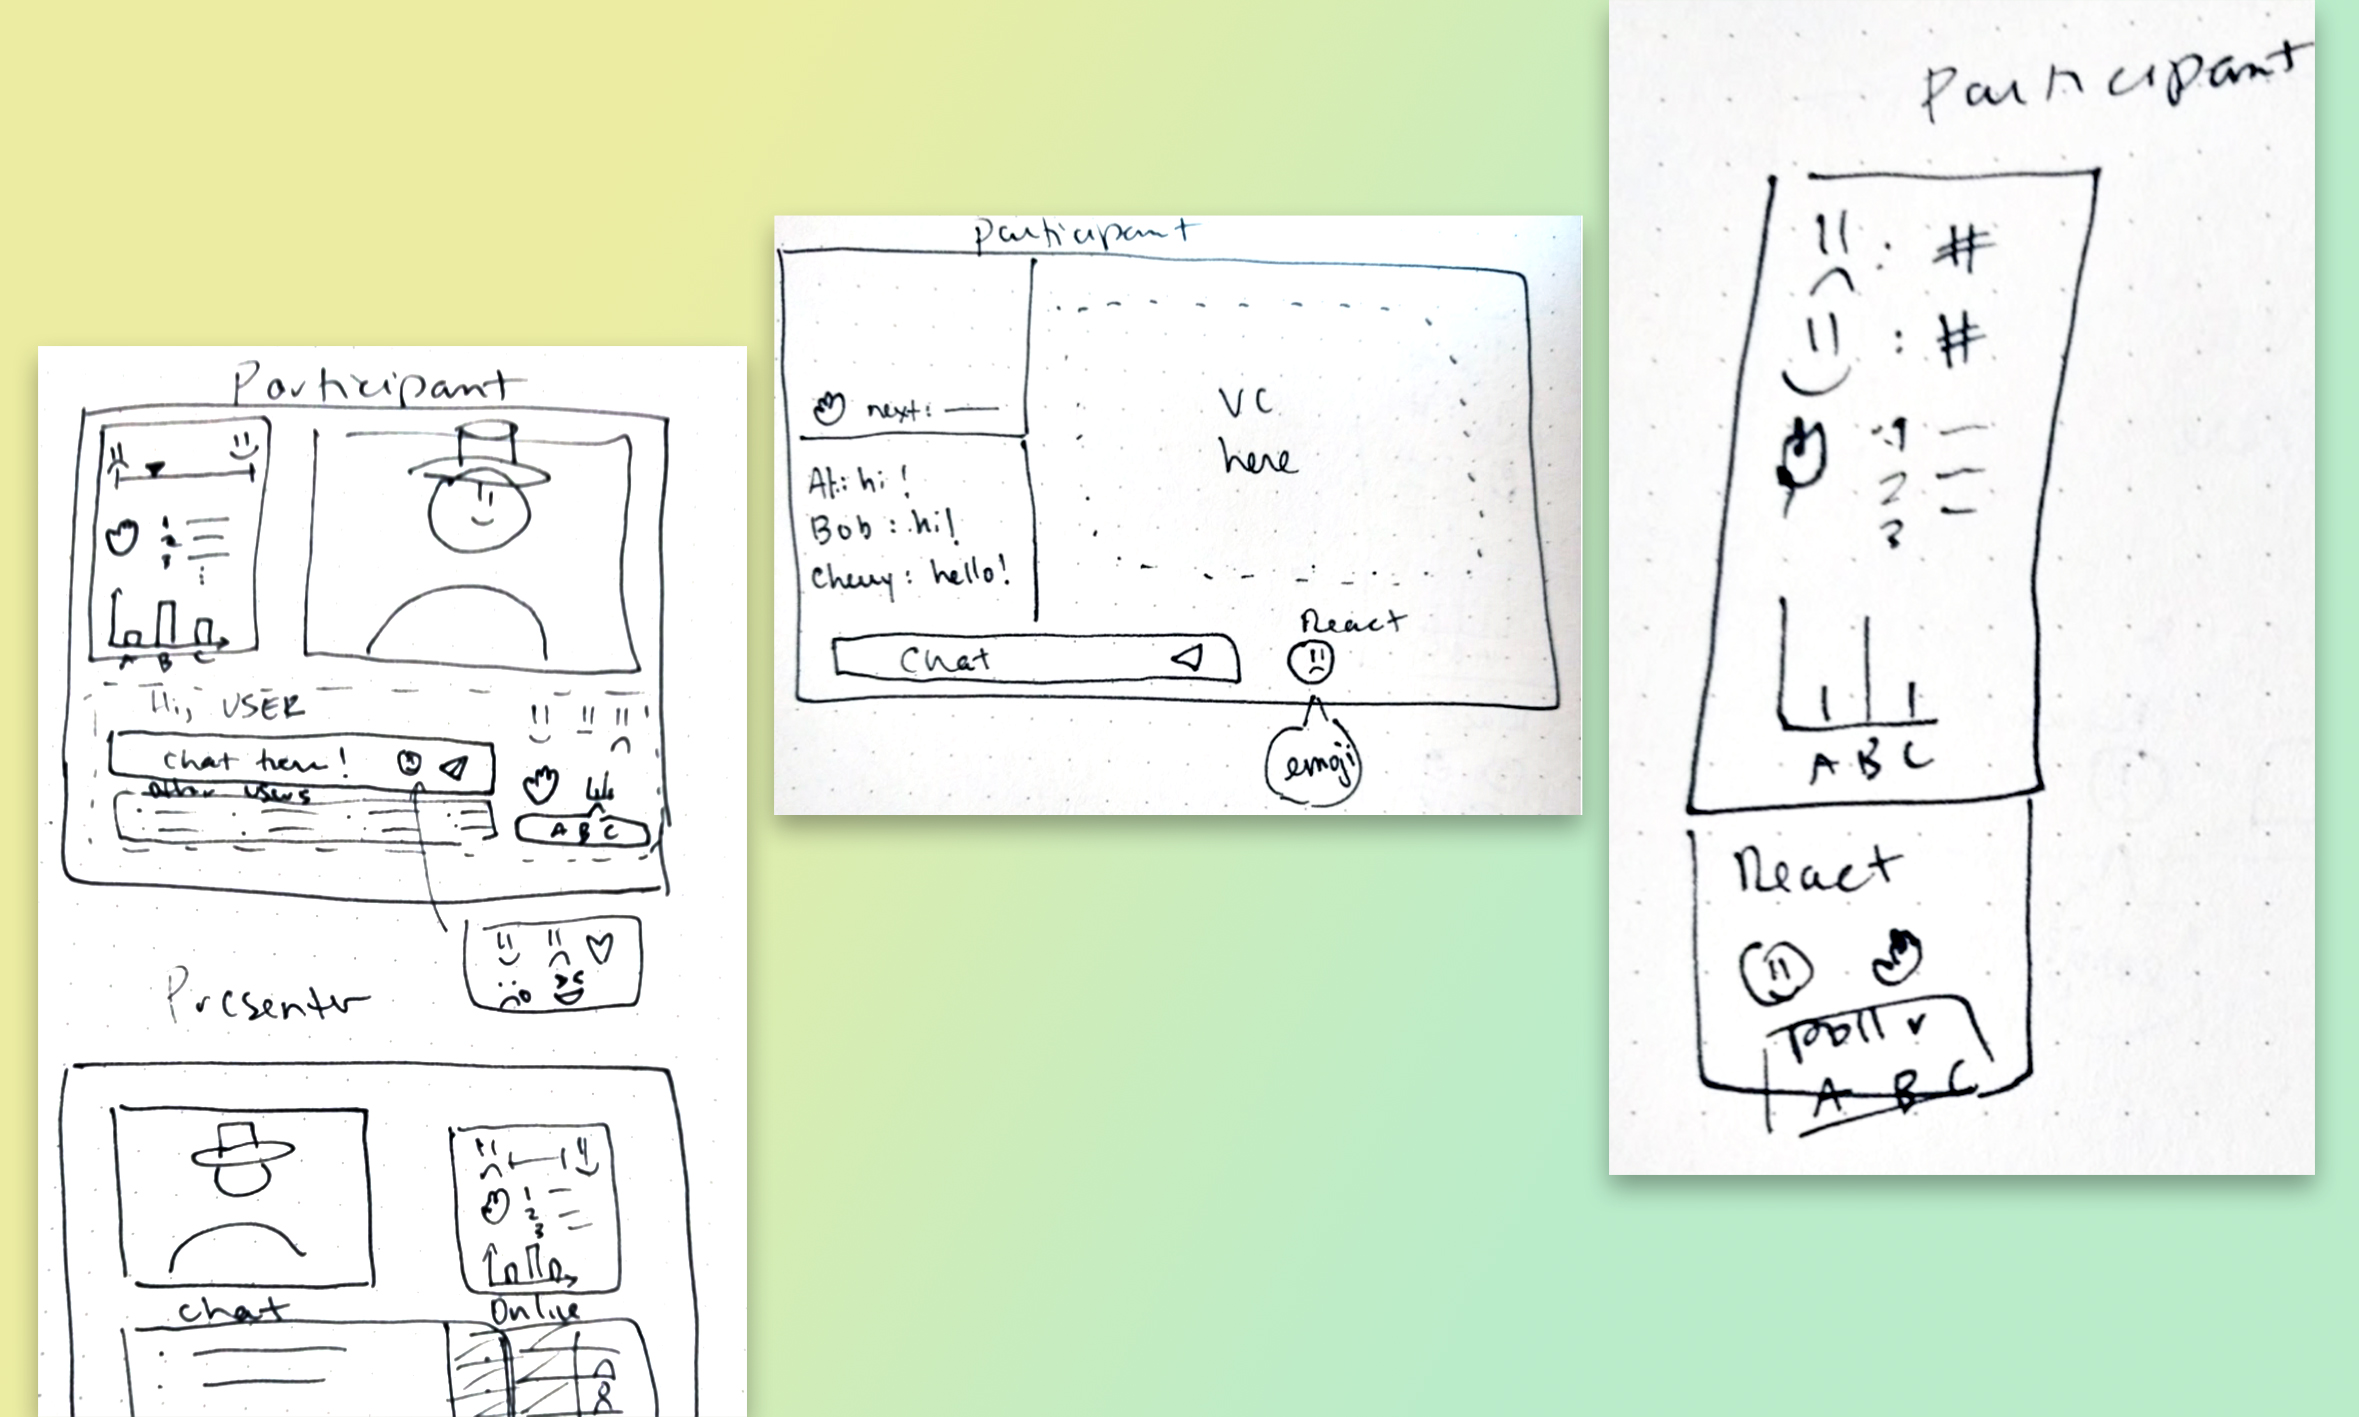 Participant
1
2
3
A B C
Hi, USER
Chat here!
other users
A B C
Presenter
1
2
3
Chat
Online
Participant
next:
VC
here
Al: hi!
Bob: hi!
Cheryy: hello!
React
Chat
emoji
Participant
: #
: #
1
2
3
A B C
React
Poll
A B C